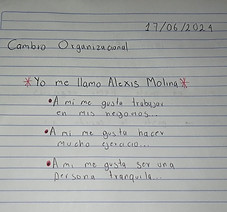 17/06/2021
Cambio Organizacional
*Yo me llamo Alexis Molina*
•A mi me gusta trabajar
en mis negocios...
•A mi me gusta hacer
mucho ejercicio...
•A mi me gusta ser una
persona tranquila...